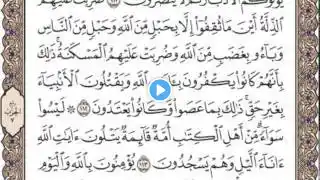 يُوَلُّوكُمُ الْأَدْبَارَ ثُمَّ لَا يُنصَرُونَ ۝١١١ ضُرِبَتْ عَلَيْهِمُ
الذِّلَّةُ أَيْنَ مَا ثُقِفُوا إِلَّا بِحَبْلٍ مِّنَ اللَّهِ وَحَبْلٍ مِّنَ النَّاسِ
وَبَاءُو بِغَضَبٍ مِّنَ اللَّهِ وَضُرِبَتْ عَلَيْهِمُ الْمَسْكَنَةُ ذَٰلِكَ
بِأَنَّهُمْ كَانُوا يَكْفُرُونَ بِـَٔايَـٰتِ اللَّهِ وَيَقْتُلُونَ الْأَنۢبِيَاءَ
بِغَيْرِ حَقٍّ ذَٰلِكَ بِمَا عَصَوا وَّكَانُوا يَعْتَدُونَ ۝١١٢ لَيْسُوا
سَوَاءً مِّنْ أَهْلِ الْكِتَـٰبِ أُمَّةٌ قَائِمَةٌ يَتْلُونَ ءَايَـٰتِ اللَّهِ
ءَانَاءَ الَّيْلِ وَهُمْ يَسْجُدُونَ ۝١١٣ يُؤْمِنُونَ بِاللَّهِ وَالْيَوْمِ